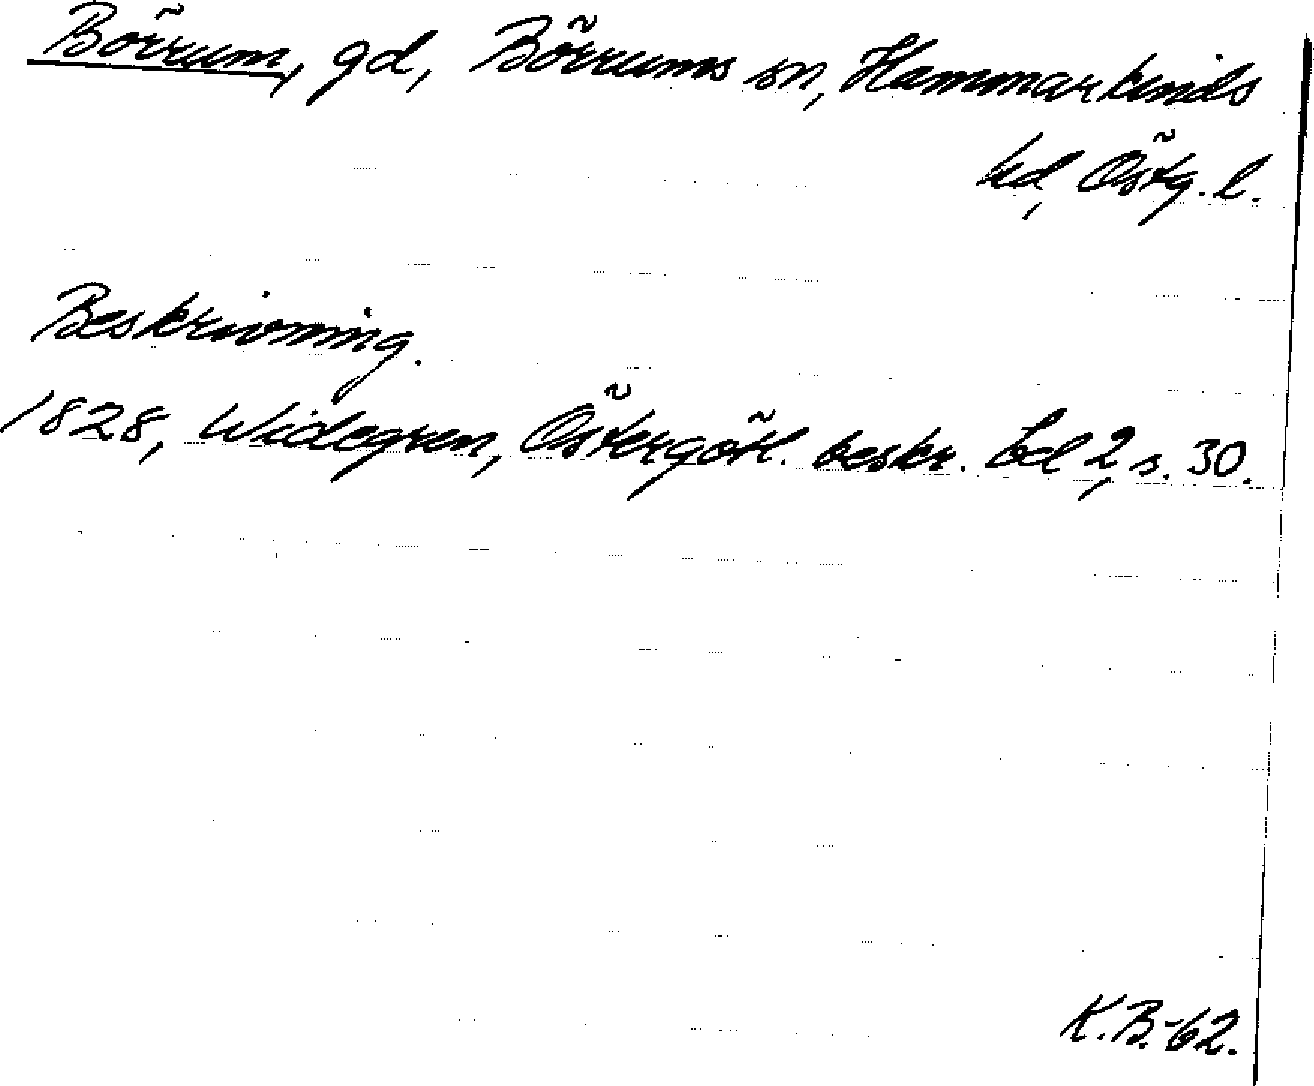 Börrum, gd, Börrums sn, Hammarkinds
hd, Östg. l.
Beskrivning.
1828, Widegren, Östergötl. beskr. bd 2, s. 30.
K.B.-62.